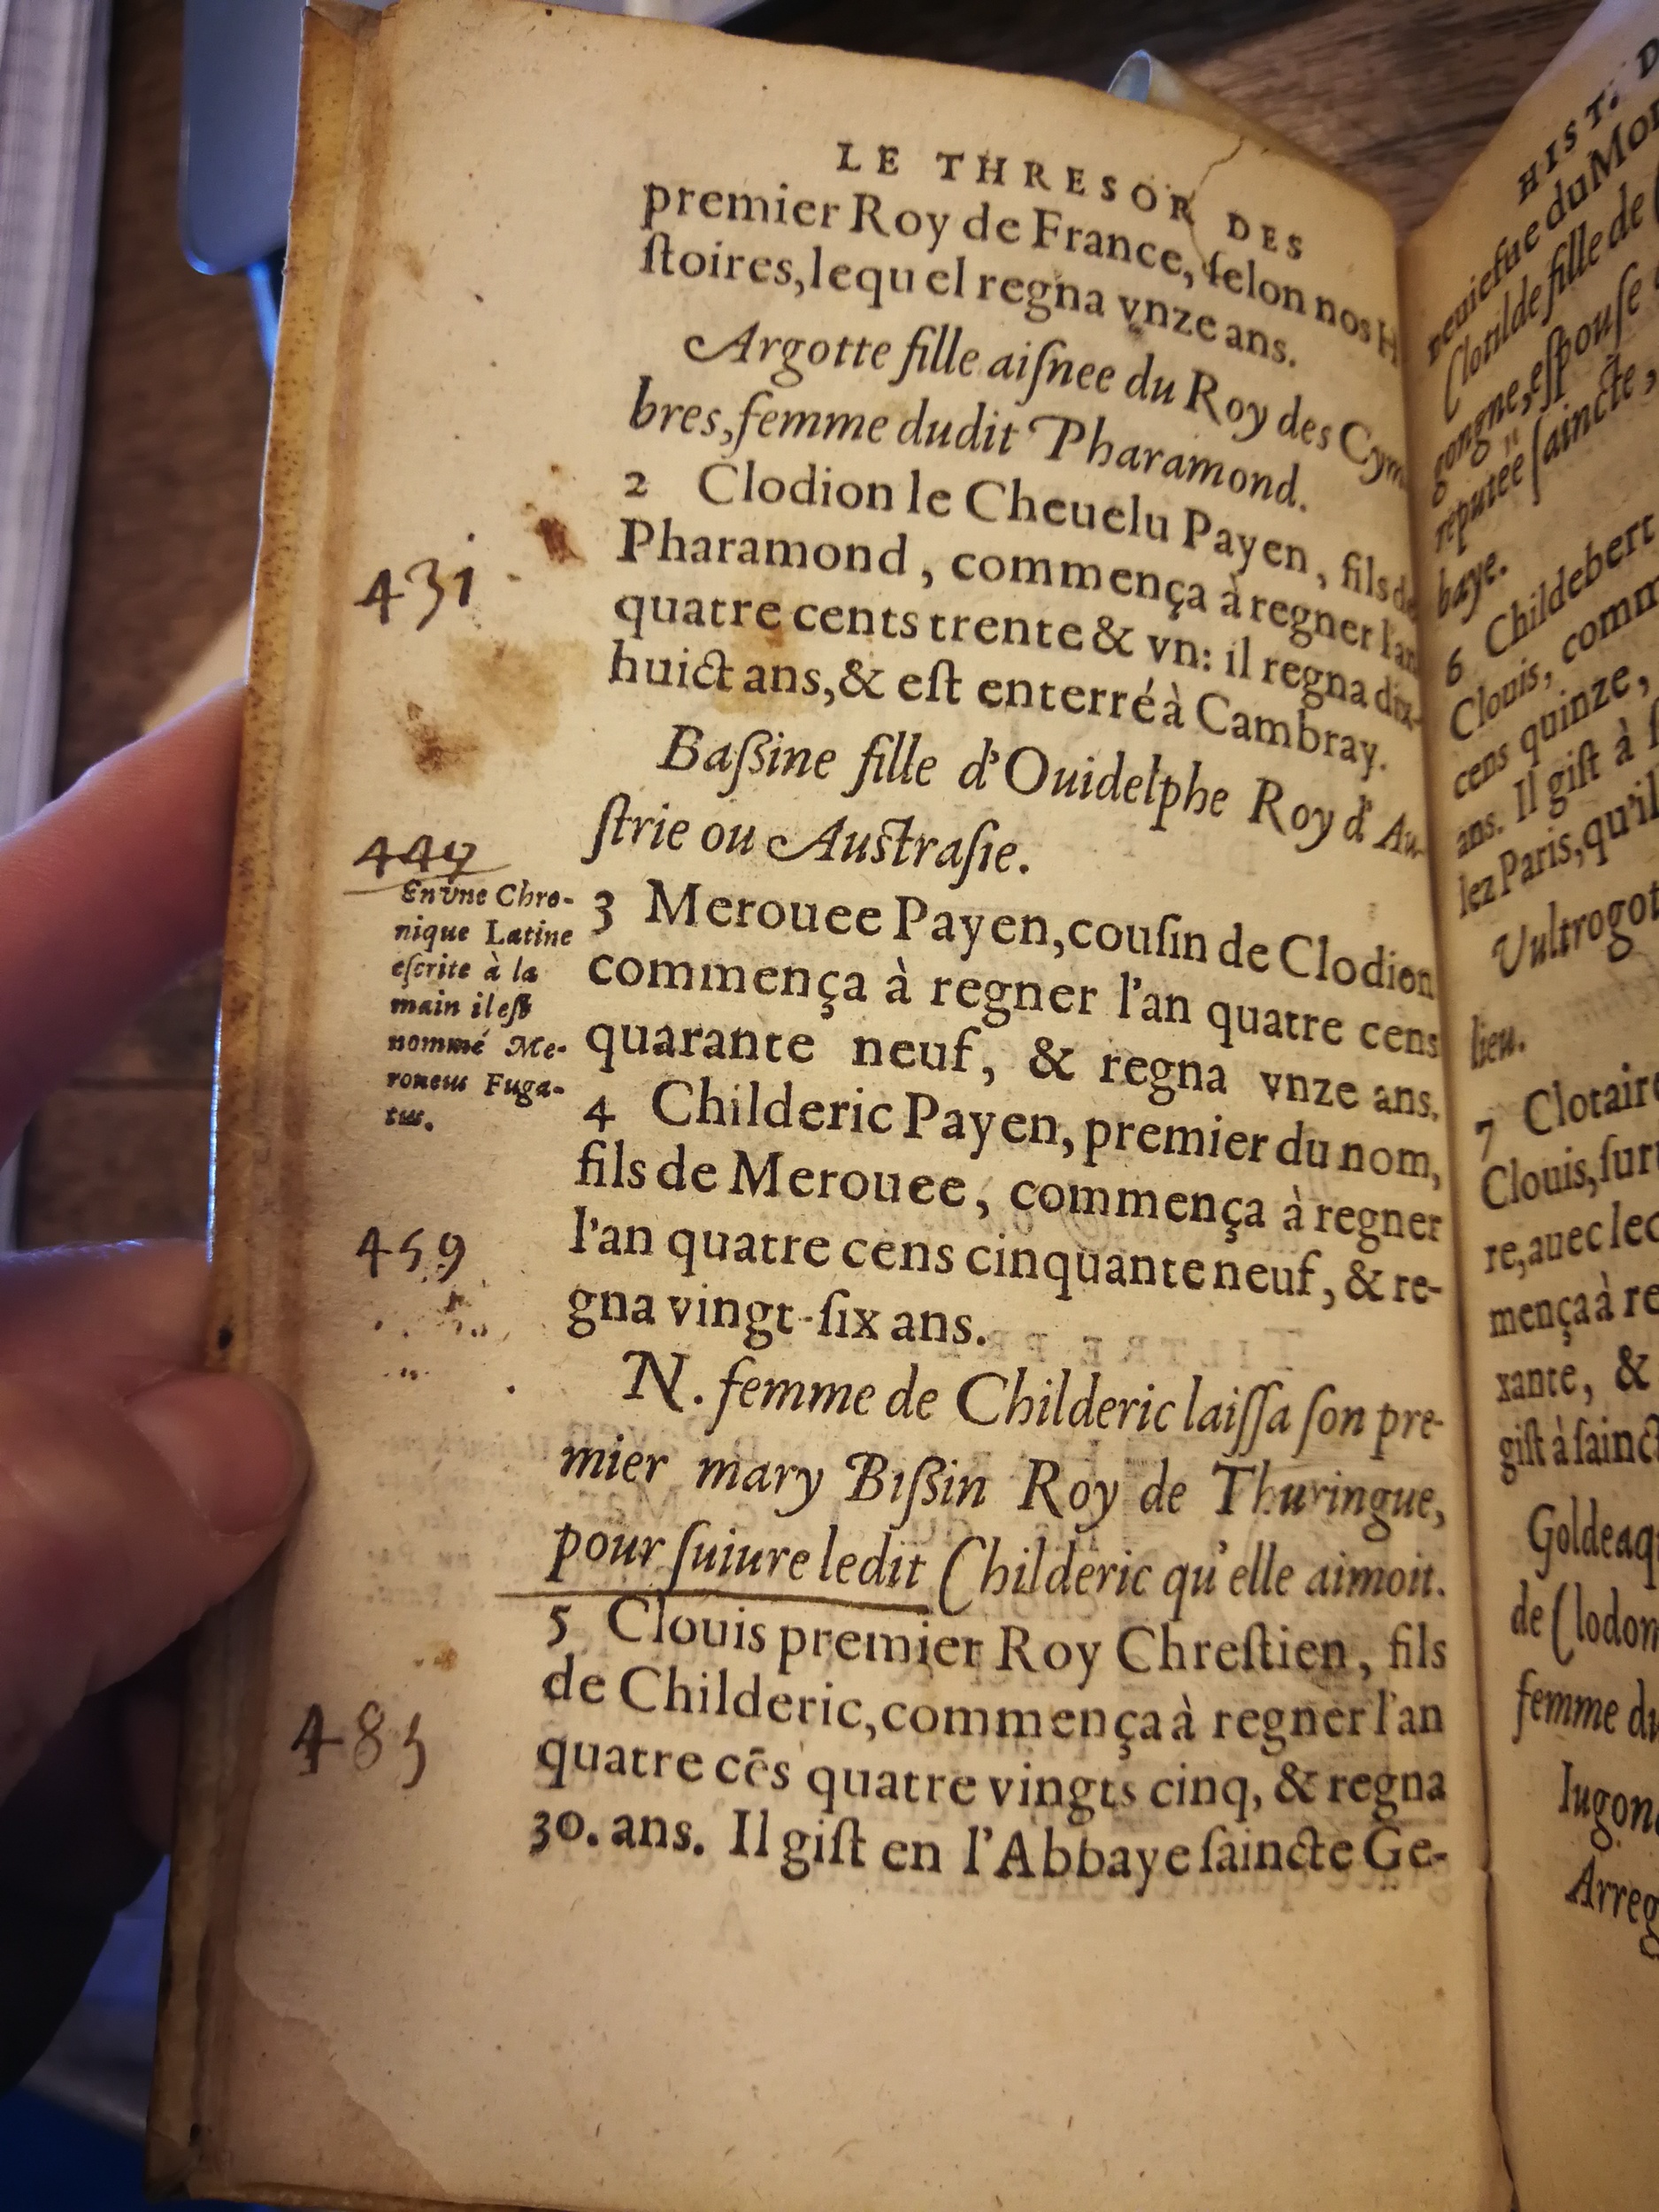 LE THRESOR DES
premier Roy de France, ſelon nos H
ſtoires, lequel regna vnze ans.
Argotte fille aiſnee du Roy des Cym
bres, femme dudit Pharamond.
2 Clodion le Cheuelu Payen, fils de
Pharamond, commença à regner l'an
quatre cents trente & vn: il regna dix-
huict ans, & eſt enterré à Cambray.
431
Baſſine fille d'Ouidelphe Roy d'Au-
ſtrie ou Auſtraſie.
449
En vne Chro-
nique Latine
eſcrite à la
main il eſt
nommé Me-
roneus Fuga-
tus.
3 Merouee Payen, couſin de Clodion
commença à regner l'an quatre cens
quarante neuf, & regna vnze ans.
4 Childeric Payen, premier du nom,
fils de Merouee, commença à regner
l'an quatre cens cinquante neuf, & re-
gna vingt-ſix ans.
459
N. femme de Childeric laiſſa ſon pre-
mier mary Biſſin Roy de Thuringue,
pour ſuiure ledit Childeric qu'elle aimoit.
5 Clouis premier Roy Chreſtien, fils
de Childeric, commença à regner l'an
quatre cẽs quatre vingts cinq, & regna
30. ans. Il giſt en l'Abbaye ſaincte Ge-
485
HIST. D
neuiefue du Mo
Clotilde fille de
gongne, eſpouſe
reputee ſaincte,
baye.
6 Childebert
Clouis, comm
cens quinze,
ans. Il giſt à ſ
lez Paris, qu'il
Vultrogot
lieu.
7 Clotaire
Clouis, ſur
re, auec leq
mença à re
xante, &
giſt à ſainct
Goldeaq
de Clodom
femme du
Iugon
Arreg